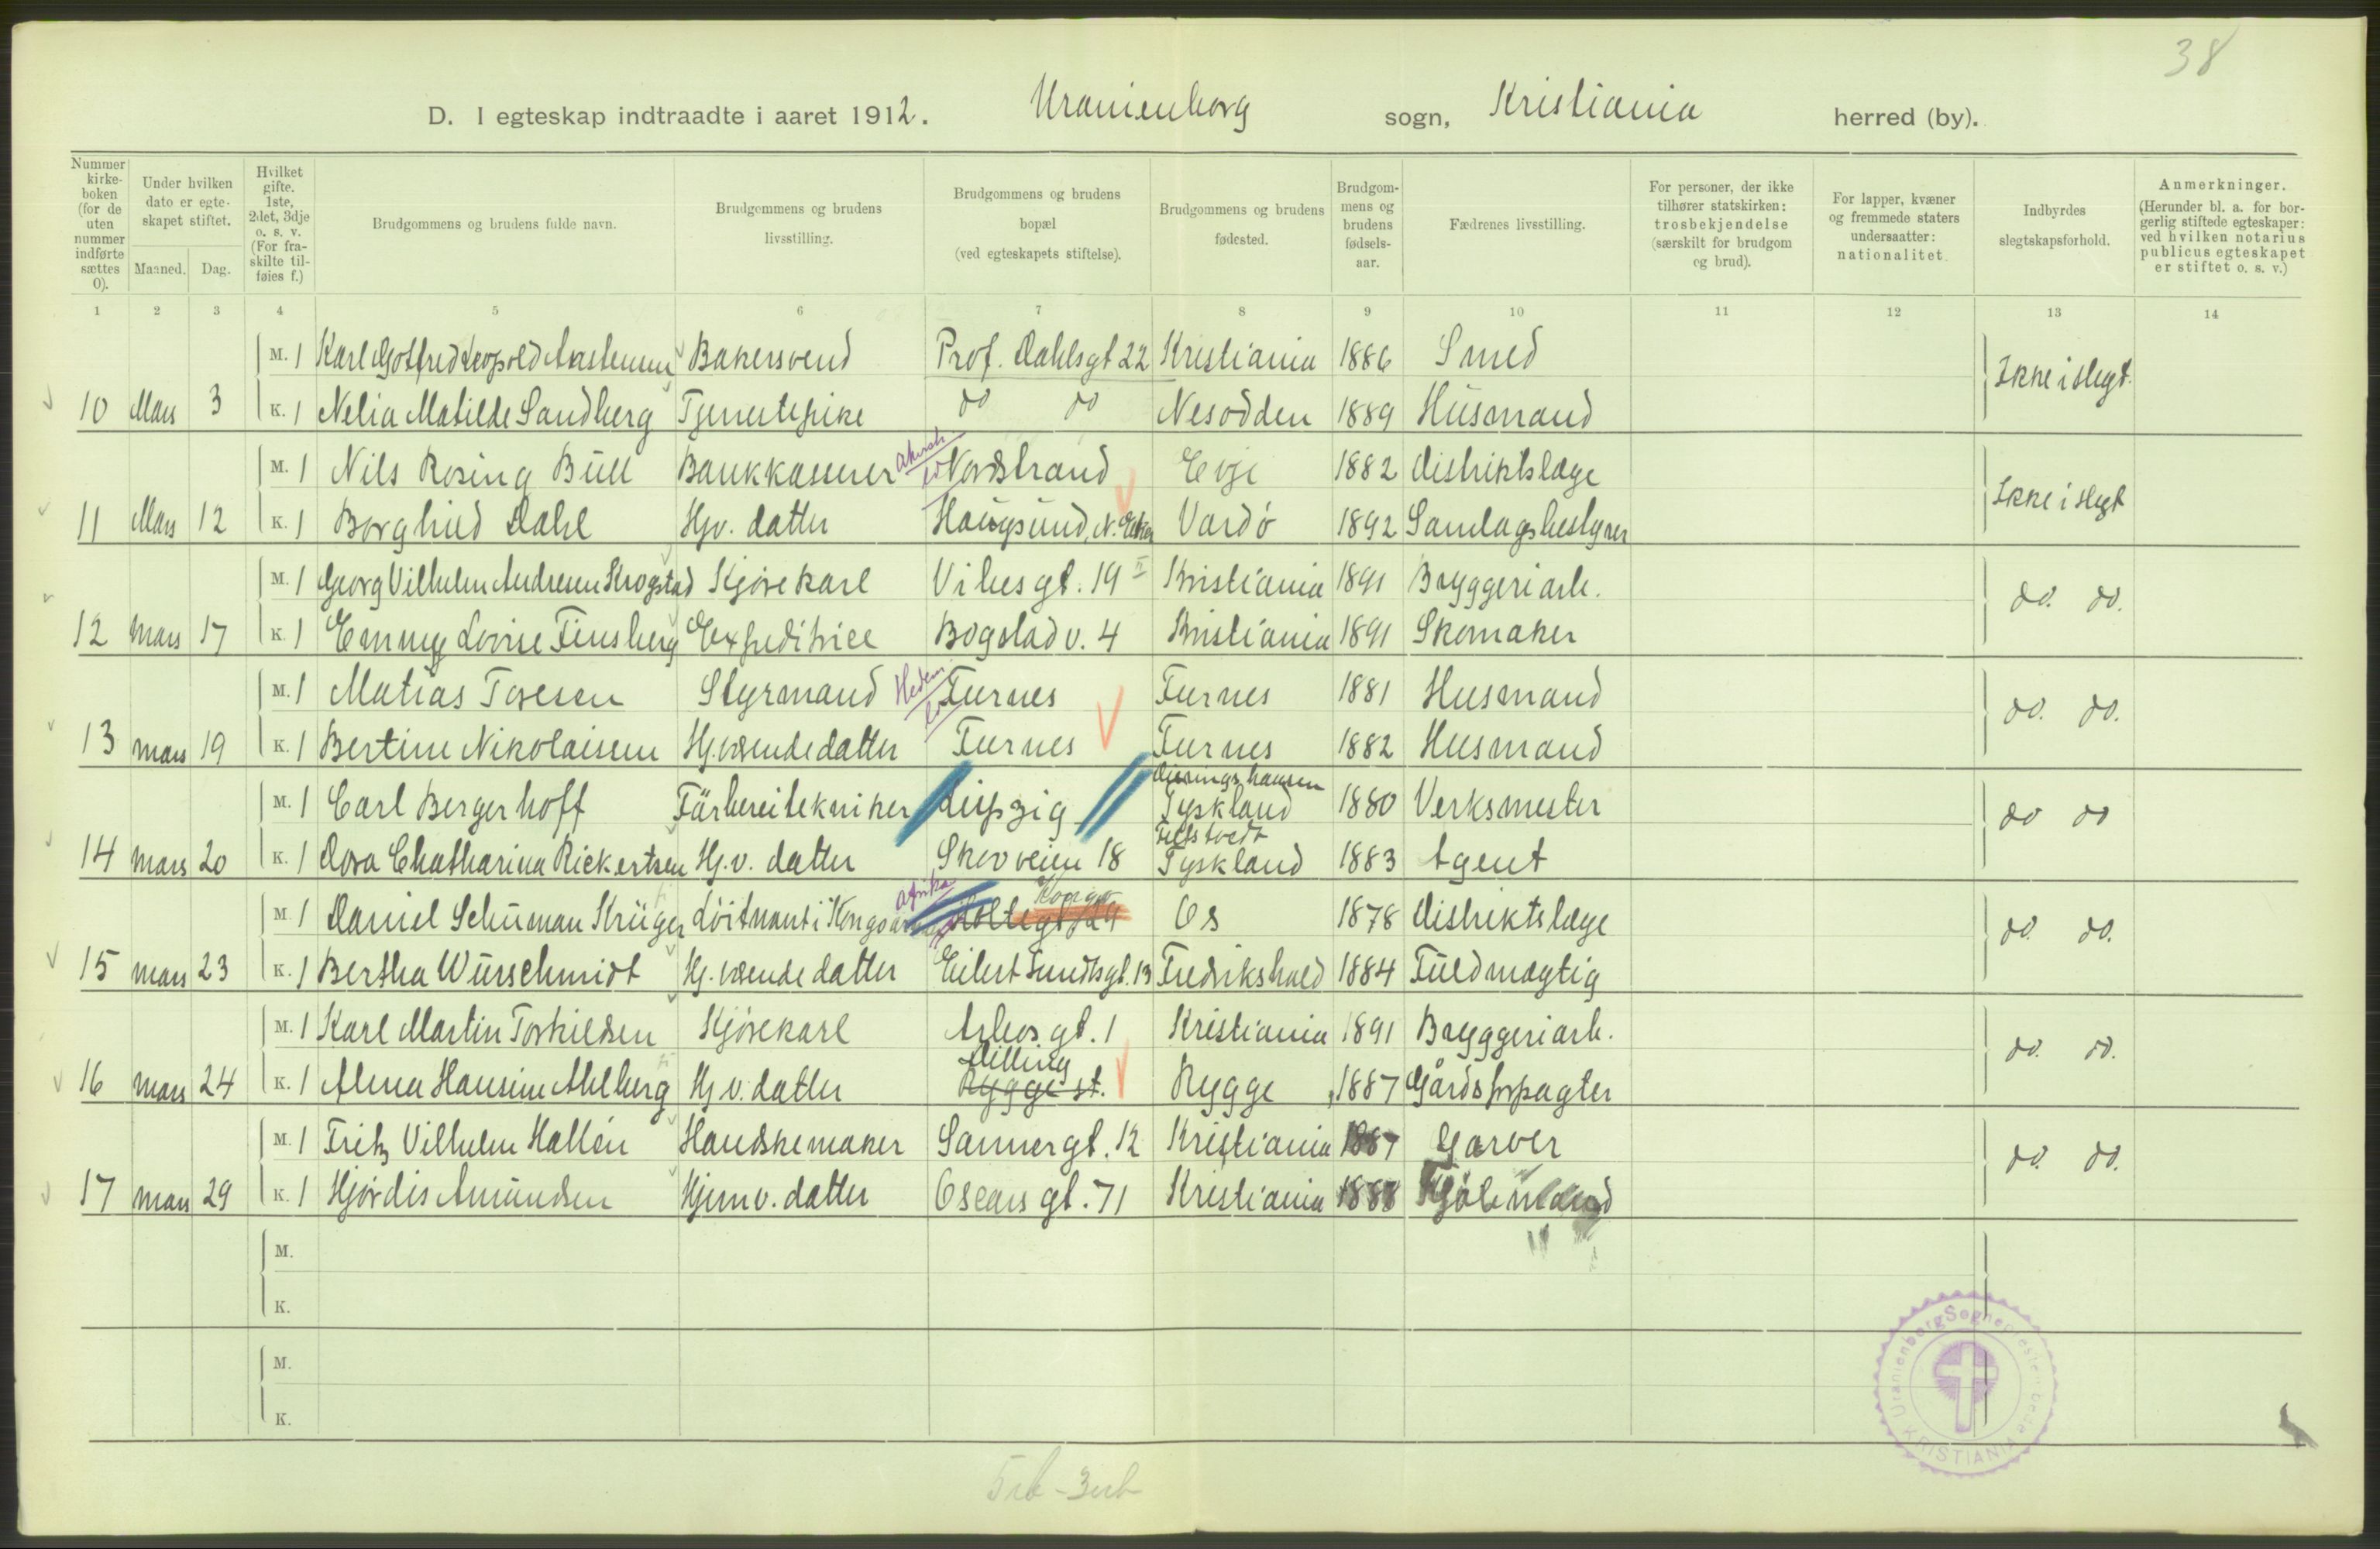 38
D. I egteskap indtraadte i aaret 1912. Uranienborg sogn, Kristiania herred (by).
Nummer kirke-boken (for de uten nummer indførte sættes 0).
Under hvilken dato er egte-skapet stiftet.
Maaned. Dag.
Hvilket gifte. 1ste, 2det, 3dje o. s. v. (For fra-skilte til-føies f.)
Brudgommens og brudens fulde navn.
Brudgommens og brudens livsstilling.
Brudgommens og brudens bopæl (ved egteskapets stiftelse).
Brudgommens og brudens fødested.
Brudgom-mens og brudens fødsels-aar.
Fædrenes livsstilling.
For personer, der ikke tilhører statskirken: trosbekjendelse (særskilt for brudgom og brud).
For lapper, kvæner og fremmede staters undersaatter: nationalitet
Indbyrdes slegtskapsforhold.
Anmerkninger. (Herunder bl. a. for bor-gerlig stiftede egteskaper: ved hvilken notarius publicus egteskapet er stiftet o. s. v.)
1 2 3 4 5 6 7 8 9 10 11 12 13 14
M. 1 Karl Gotfred Leopold Bakersvend Prof. Dahlsgt 22 Kristiania 1886 Smed Ikke i slegt.
10 Mars 3 K. 1 Nelia Matilde Sandberg Tjenestepike do do Nesodden 1889 Husmand
M. 1 Nils Rosing Bull Bankkasserer Akersh. Nordstrand Evje 1882 distriktslæge Ikke i slegt
11 Mars 12 K. 1 Borghild Dahl Hjv. datter Haugsund, N. Eker Vardö 1892 Samlagsbestyrer
M. 1 Georg Vilhelm Andresen Krogstad Kjørekarl Vibes gt. 19 II Kristiania 1891 Bryggeriarb. do. do.
12 mars 17 K. 1 Emmy Lovise Finsberg Expeditrice Bogstadv. 4 Kristiania 1891 Skomaker
M. 1 Matias Toresen Styrmand Hedem. Furnes Furnes 1881 Husmand do. do.
13 mars 19 K. 1 Bertine Nikolaisen Hj.værende datter Furnes Furnes 1882 Husmand
M. 1 Carl Bergerhoff Färbereitekniker Leipzig Tyskland 1880 Verksmester do do
14 mars 20 K. 1 Dora Chatharina Rickertsen Hj. v. datter Skovveien 18 Tyskland 1883 Agent
M. 1 Daniel Schuman Krüger Löitnant i Kongo Afrika Kongo Os 1878 distriktslæge do. do.
15 mars 23 K. 1 Bertha Würschmidt Hj. værende datter Eilert Sundtsgt. 13 Fredrikshald 1884 Fuldmægtig
M. 1 Karl Martin Torkildsen Kjørekarl Arbosgt. 1 Kristiania 1891 Bryggeriarb. do. do.
16 mars 24 K. 1 Alma Hansine Ahlberg Hj v. datter Dilling Rygge st. Rygge 1887 Gårdsforpagter
M. 1 Fritz Vilhelm Hallén Handskemaker Sannergt. 12 Kristiania 1887 Garver do. do.
17 mars 29 K. 1 Hjördis Amundsen Hjem v. datter Oscars gt. 71 Kristiania 1888
M.
K.
M.
K.
Uranienborg KRISTIANIA